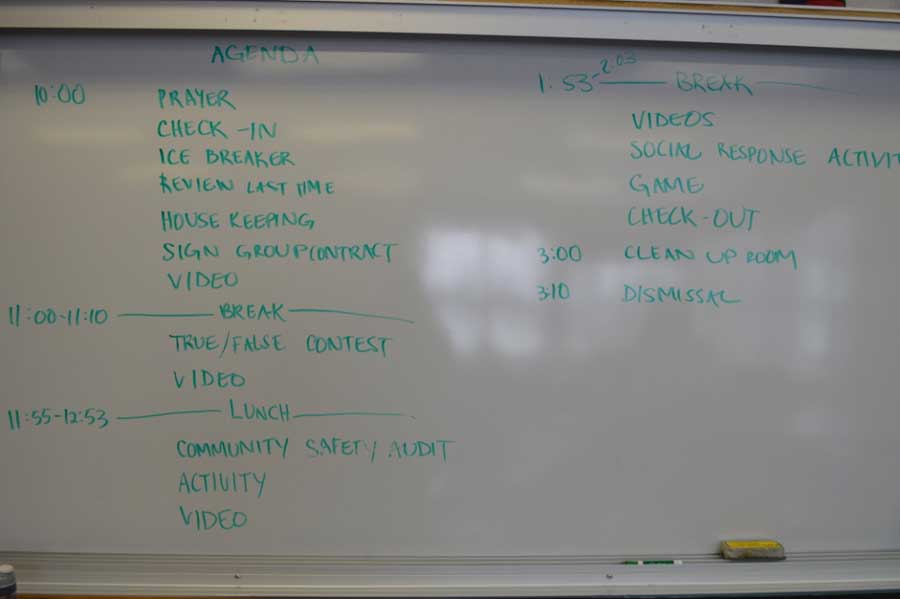 AGENDA
10:00 PRAYER
CHECK-IN
ICE BREAKER
REVIEW LAST TIME
HOUSE KEEPING
SIGN GROUP CONTRACT
VIDEO
11:00-11:10 BREAK
TRUE/FALSE CONTEST
VIDEO
11:55-12:53 LUNCH
COMMUNITY SAFETY AUDIT
ACTIVITY
VIDEO
1:53-2:03 BREAK
VIDEOS
SOCIAL RESPONSE ACTIVIT
GAME
CHECK-OUT
3:00 CLEAN UP ROOM
3:10 DISMISSAL